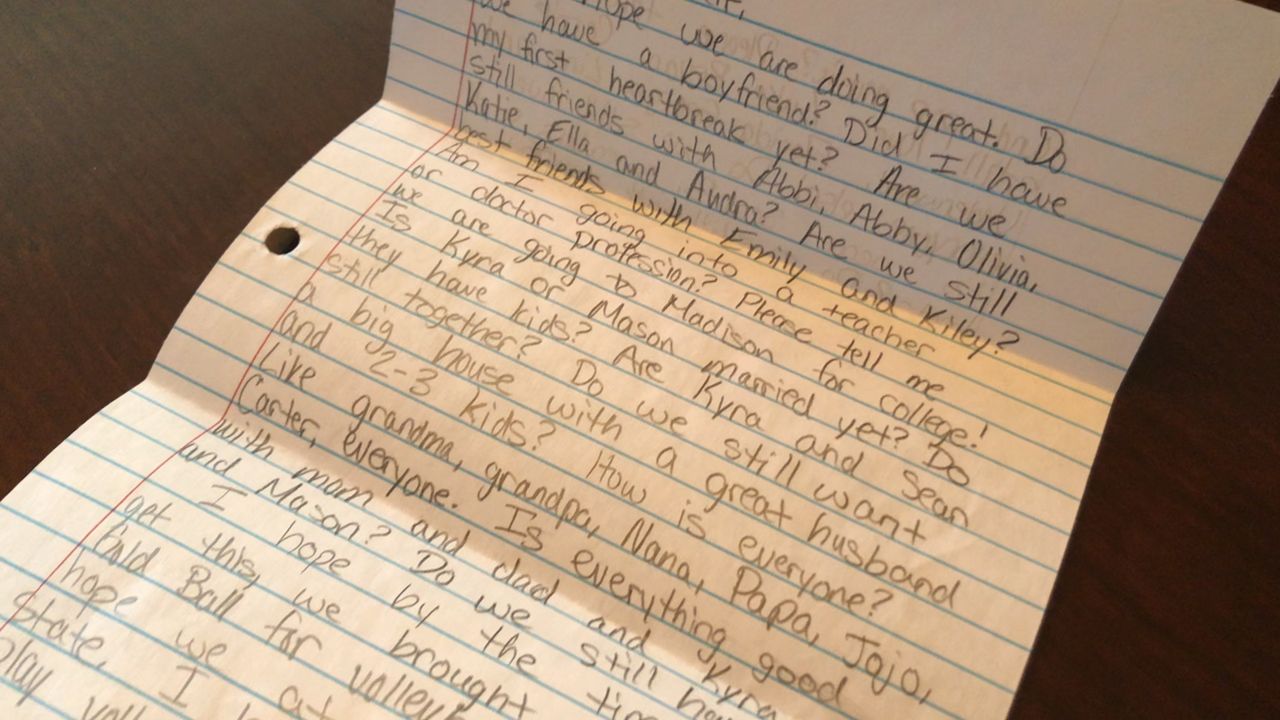 Hope we are doing great. Do
we have a boyfriend? Did I have
my first heartbreak yet? Are we
still friends with Abbi, Abby, Olivia,
Katie, Ella and Audra? Are we still
best friends with Emily and Kiley?
Am I going into a teacher
or doctor profession? Please tell me
we are going to Madison for college!
Is Kyra or Mason married yet? Do
they have kids? Are Kyra and Sean
still together? Do we still want
a big house with a great husband
and 2-3 kids? How is everyone?
Like grandma, grandpa, Nana, Papa, Jojo,
Carter, everyone. Is everything good
with mom and dad and Kyra
and Mason? Do we still
I hope by the
get this, we brought
Ball for
hope we
State, I
play